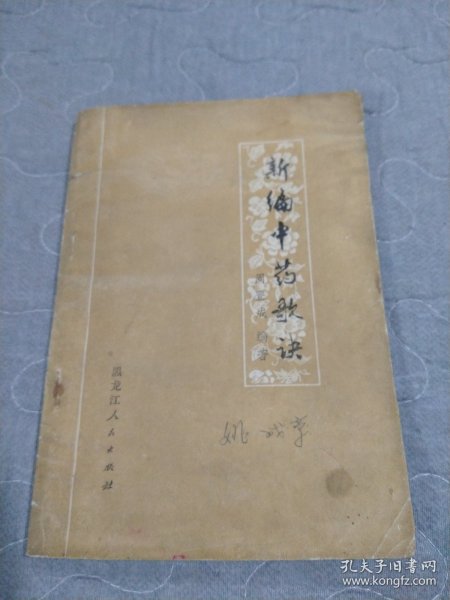 新编中药歌诀
编著
黑龙江人民出版社
姚
孔夫子旧书网
www.kongfz.com